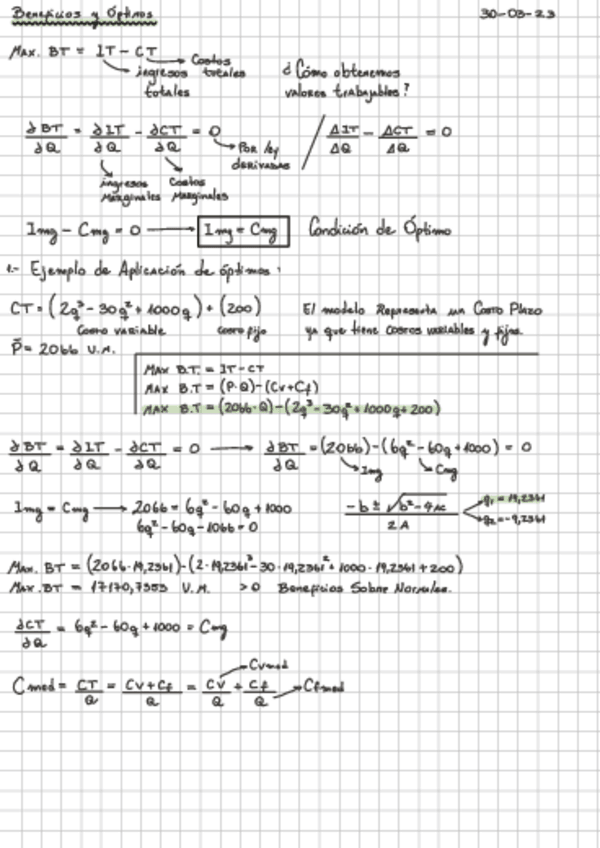 Beneficios y Óptimos 30-03-23
Max. BT = IT - CT
Costos totales
ingresos totales
¿Cómo obtenemos
valores trabajables?
∂BT/∂Q = ∂IT/∂Q - ∂CT/∂Q = 0 / ΔIT/ΔQ - ΔCT/ΔQ = 0
Por ley
derivadas
ingresos Costos
Marginales Marginales
Img - Cmg = 0 → Img = Cmg Condición de Óptimo
1.- Ejemplo de Aplicación de óptimos:
CT = (2q³ - 30q² + 1000q) + (200) El modelo Representa un Corto Plazo
Costo variable costo fijo ya que tiene costos variables y fijos.
P̄ = 2066 U.M.
Max B.T. = IT - CT
Max B.T = (P·Q) - (Cv + Cf)
Max B.T = (2066·Q) - (2q³ - 30q² + 1000q + 200)
∂BT/∂Q = ∂IT/∂Q - ∂CT/∂Q = 0 → ∂BT/∂Q = (2066) - (6q² - 60q + 1000) = 0
Img Cmg
Img = Cmg → 2066 = 6q² - 60q + 1000
6q² - 60q - 1066 = 0
-b ± √b² - 4ac / 2A
q₁ = 19,2361
q₂ = -9,2361
Max. BT = (2066·19,2361) - (2·19,2361³ - 30·19,2361² + 1000·19,2361 + 200)
Max. BT = 17170,7353 U.M. > 0 Beneficios Sobre Normales.
∂CT/∂Q = 6q² - 60q + 1000 = Cmg
Cmed = CT/Q = Cv + Cf/Q = Cv/Q + Cf/Q
Cvmed
Cfmed